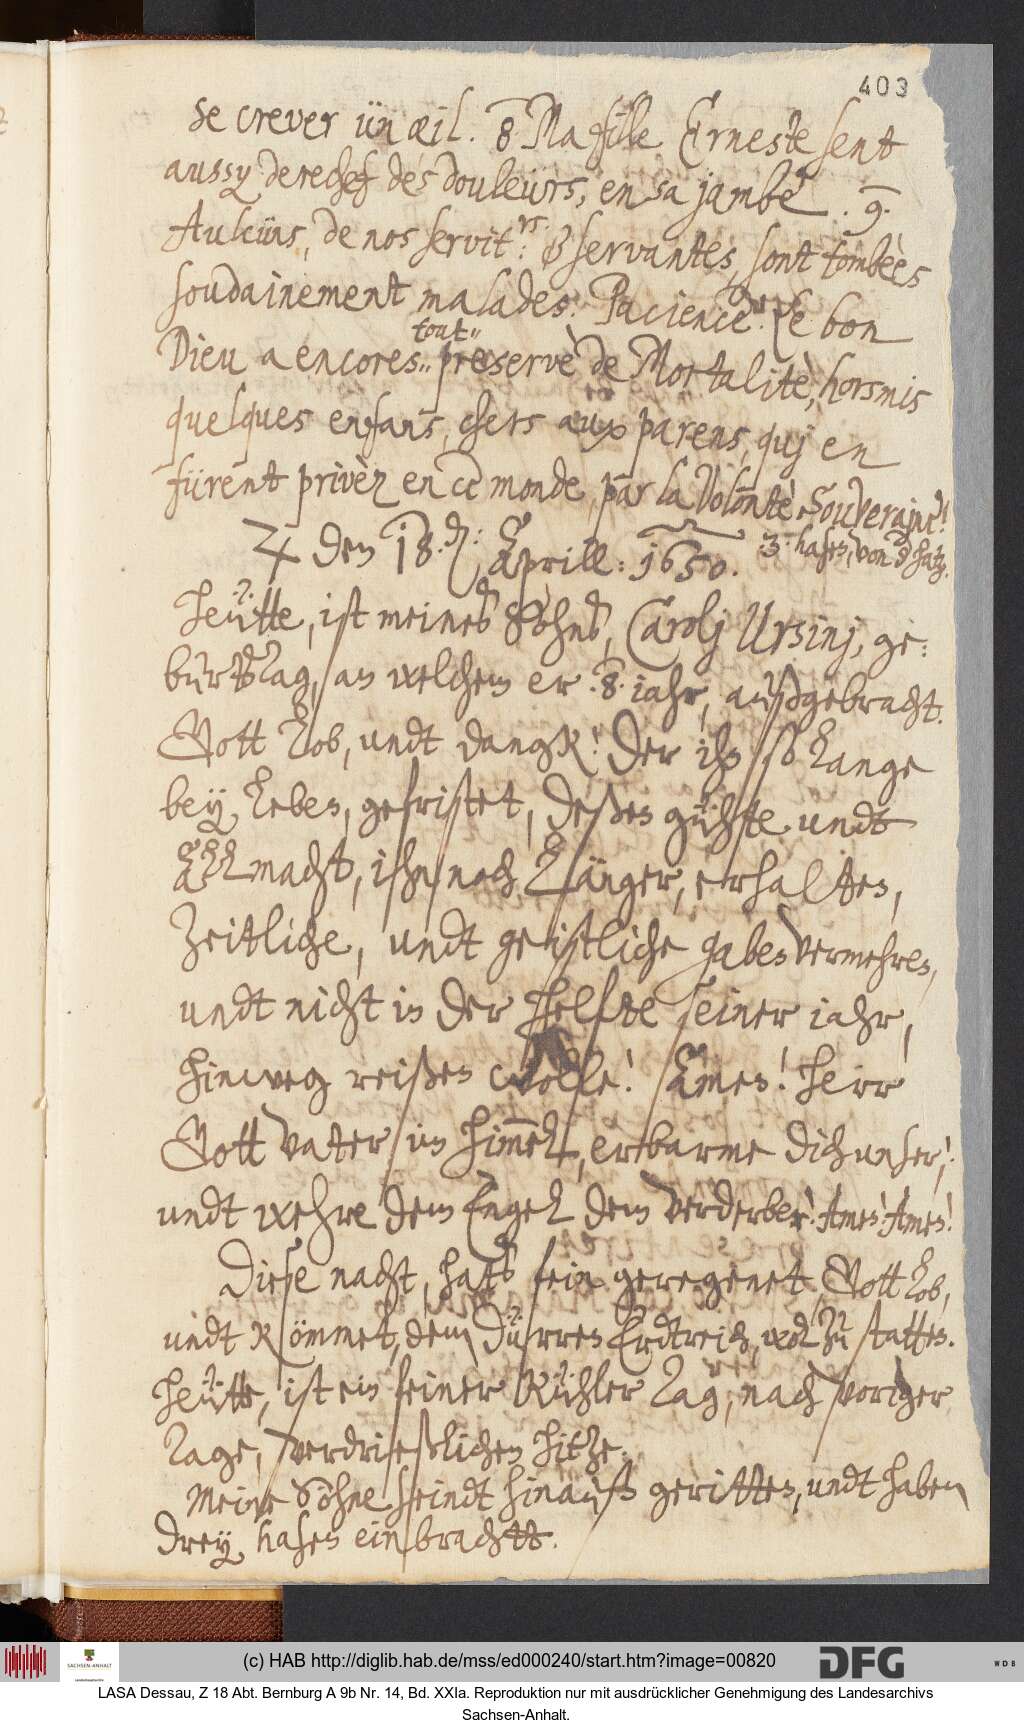 403
se crever ün œil. 8. Ma fille Erneste sent
aussy derechef des douleürs, en sa jambe. 9.
Aulcüns, de nos servit:rs & servantes, sont tombèes
soudainement malades. Pacience! Le bon
Dieu a encores tout preservè de Mortalitè, horsmis
quelques enfans, chers aux parens, quj en
fürent privèz en ce monde, par la Volontè Souverajne!
♃ den 18. Aprill: 1650. 3. hasen, von
Heütte, ist meines Sohns, Carolj Ursinj, ge:
burtstag, an welchem er .8. iahr, außgebracht.
Gott lob, undt dangk! Der ihn so lange
bey leben, gefristet, deßen gühte undt
Allmacht, ihn noch länger, erhaltten,
Zeitliche, undt geistliche gaben vermehren,
undt nicht in der Helfte seiner iahr,
hinweg reißen wolle! Amen! Herr
Gott Vater im Himmel, erbarme dich unser,!
undt wehre dem Engel dem verderber! Amen! Amen!
Diese nacht, hats fein geregenet, Gott lob,
undt kömmet, dem dürren Erdtreich, wol zu statten.
Heütte, ist ein feiner kühler Tag, nach voriger
Tage, verdrießlichen hitze.
Meine Söhne seindt hinauß geritten, undt haben
drey hasen einbrachtt.
(c) HAB http://diglib.hab.de/mss/ed000240/start.htm?image=00820
SACHSEN-ANHALT
DFG
WDB
LASA Dessau, Z 18 Abt. Bernburg A 9b Nr. 14, Bd. XXIa. Reproduktion nur mit ausdrücklicher Genehmigung des Landesarchivs
Sachsen-Anhalt.